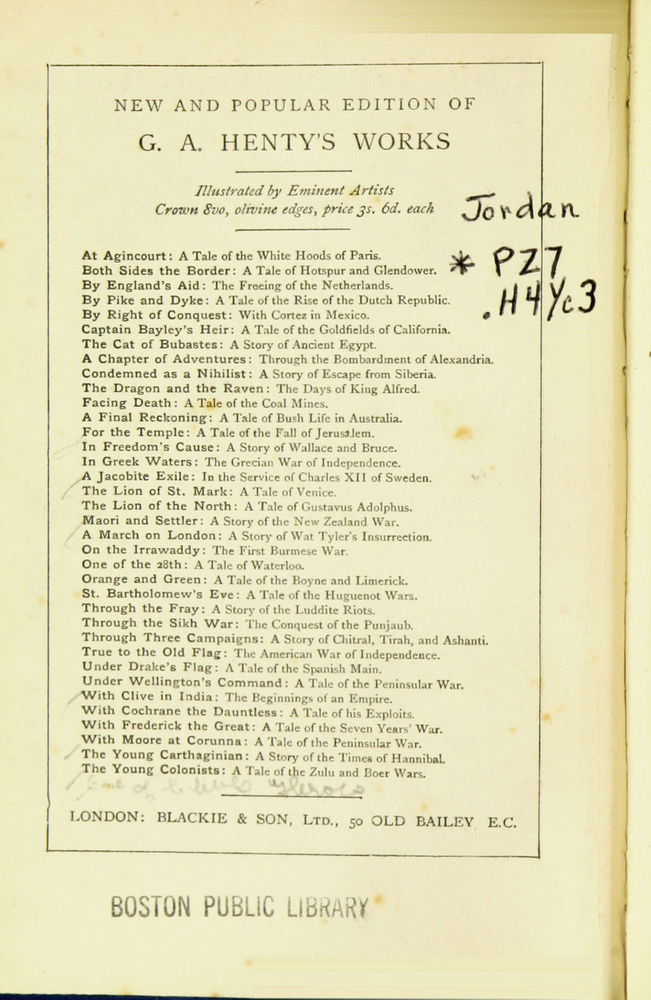 NEW AND POPULAR EDITION OF
G. A. HENTY'S WORKS
Illustrated by Eminent Artists
Crown 8vo, olivine edges, price 3s. 6d. each
Jordan
* PZ7
.H4Yc3
At Agincourt: A Tale of the White Hoods of Paris.
Both Sides the Border: A Tale of Hotspur and Glendower.
By England's Aid: The Freeing of the Netherlands.
By Pike and Dyke: A Tale of the Rise of the Dutch Republic.
By Right of Conquest: With Cortez in Mexico.
Captain Bayley's Heir: A Tale of the Goldfields of California.
The Cat of Bubastes: A Story of Ancient Egypt.
A Chapter of Adventures: Through the Bombardment of Alexandria.
Condemned as a Nihilist: A Story of Escape from Siberia.
The Dragon and the Raven: The Days of King Alfred.
Facing Death: A Tale of the Coal Mines.
A Final Reckoning: A Tale of Bush Life in Australia.
For the Temple: A Tale of the Fall of Jerusalem.
In Freedom's Cause: A Story of Wallace and Bruce.
In Greek Waters: The Grecian War of Independence.
A Jacobite Exile: In the Service of Charles XII of Sweden.
The Lion of St. Mark: A Tale of Venice.
The Lion of the North: A Tale of Gustavus Adolphus.
Maori and Settler: A Story of the New Zealand War.
A March on London: A Story of Wat Tyler's Insurrection.
On the Irrawaddy: The First Burmese War.
One of the 28th: A Tale of Waterloo.
Orange and Green: A Tale of the Boyne and Limerick.
St. Bartholomew's Eve: A Tale of the Huguenot Wars.
Through the Fray: A Story of the Luddite Riots.
Through the Sikh War: The Conquest of the Punjaub.
Through Three Campaigns: A Story of Chitral, Tirah, and Ashanti.
True to the Old Flag: The American War of Independence.
Under Drake's Flag: A Tale of the Spanish Main.
Under Wellington's Command: A Tale of the Peninsular War.
With Clive in India: The Beginnings of an Empire.
With Cochrane the Dauntless: A Tale of his Exploits.
With Frederick the Great: A Tale of the Seven Years' War.
With Moore at Corunna: A Tale of the Peninsular War.
The Young Carthaginian: A Story of the Times of Hannibal.
The Young Colonists: A Tale of the Zulu and Boer Wars.
LONDON: BLACKIE & SON, LTD., 50 OLD BAILEY E.C.
BOSTON PUBLIC LIBRARY